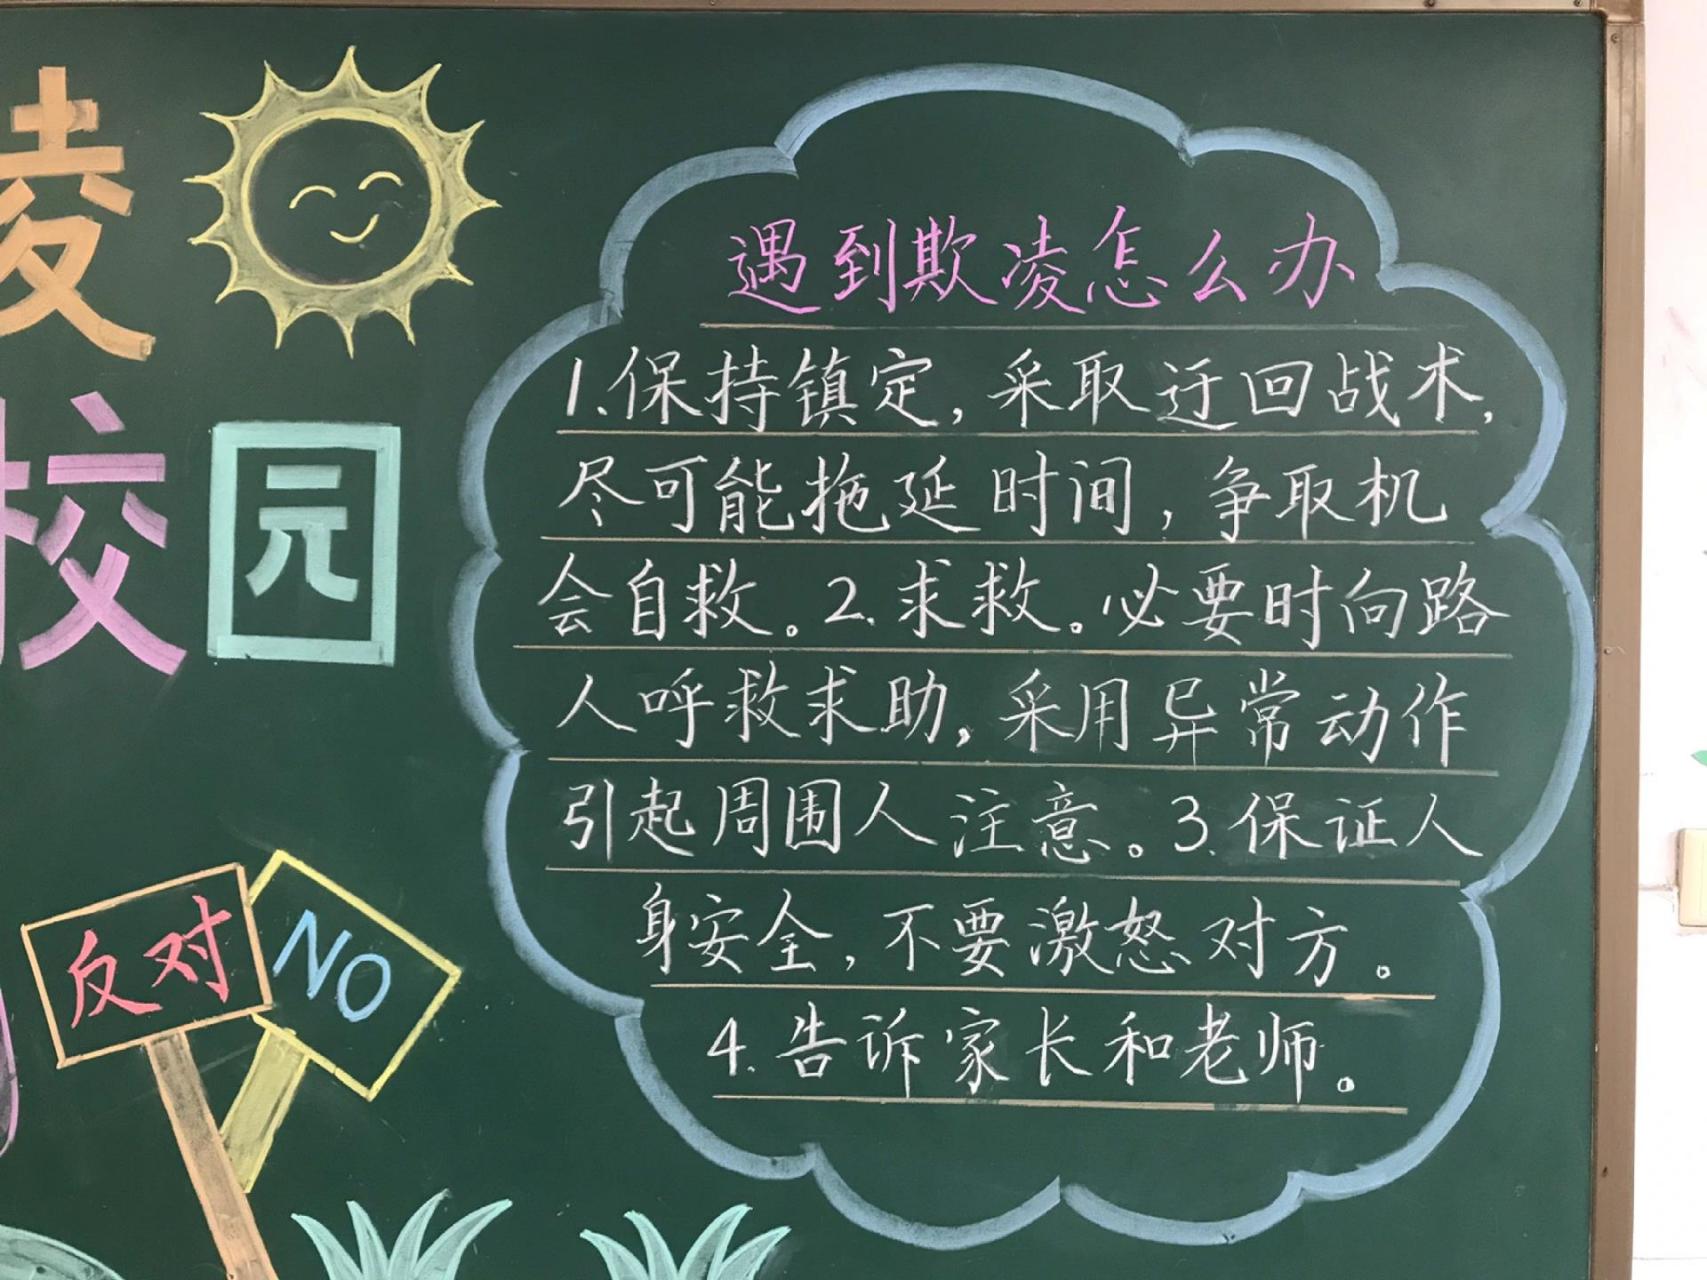 凌
校园
遇到欺凌怎么办
1.保持镇定,采取迂回战术,
尽可能拖延时间,争取机
会自救。2.求救。必要时向路
人呼救求助,采用异常动作
引起周围人注意。3.保证人
身安全,不要激怒对方。
4.告诉家长和老师。
反对
NO